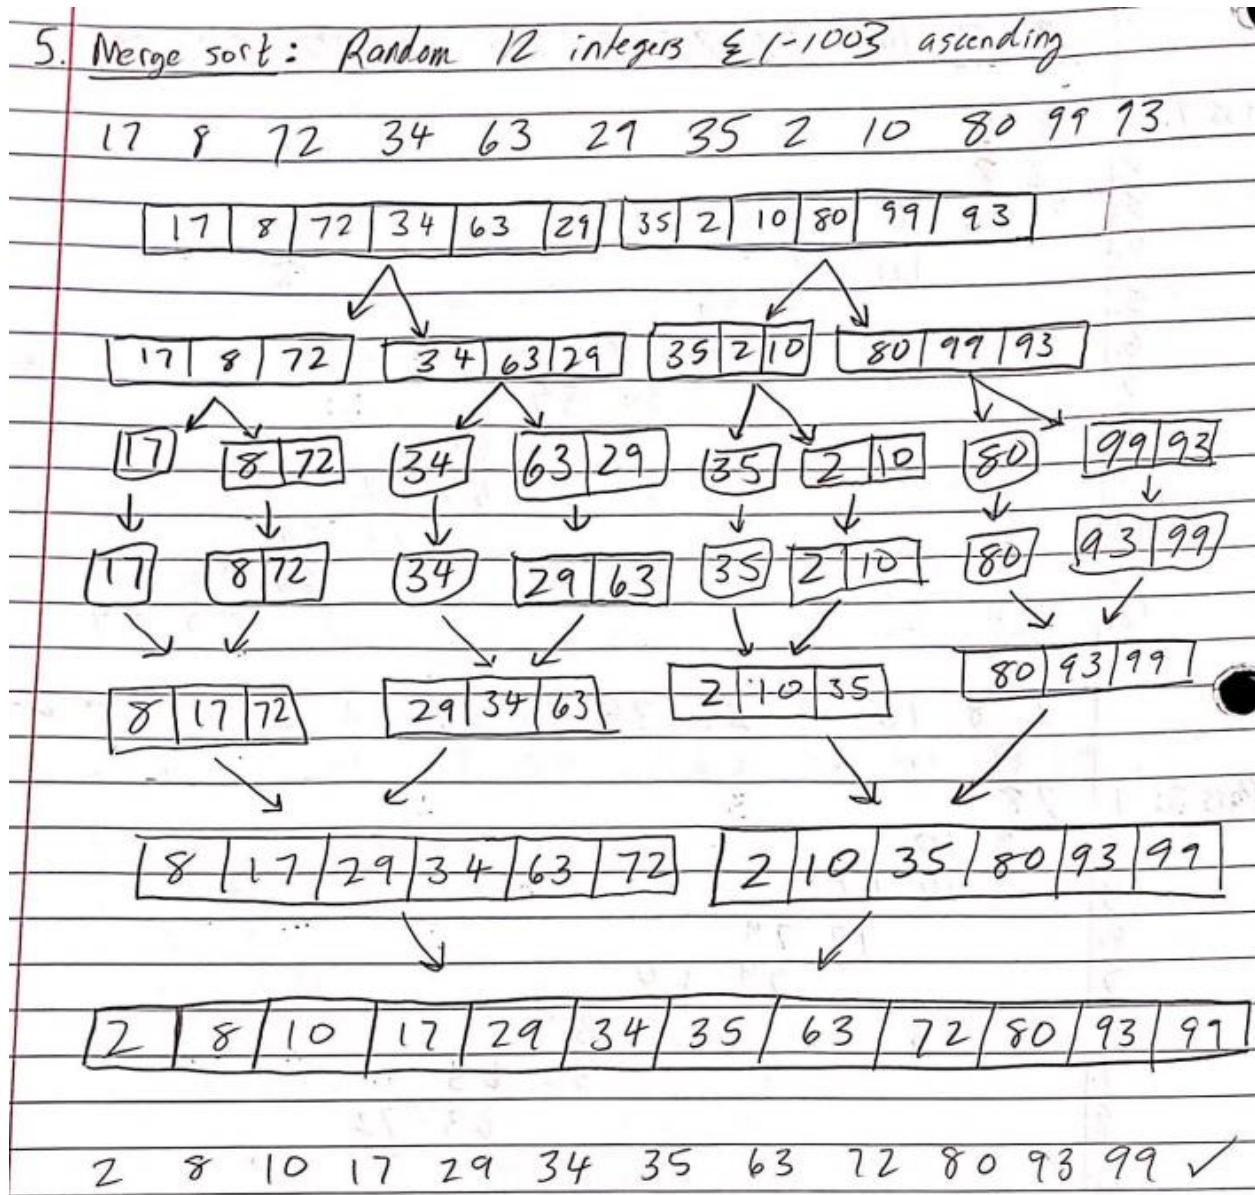 5. Merge sort: Random 12 integers {1-100} ascending
17 8 72 34 63 29 35 2 10 80 99 93
17 8 72 34 63 29 35 2 10 80 99 93
17 8 72 34 63 29 35 2 10 80 99 93
17 8 72 34 63 29 35 2 10 80 99 93
17 8 72 34 29 63 35 2 10 80 93 99
8 17 72 29 34 63 2 10 35 80 93 99
8 17 29 34 63 72 2 10 35 80 93 99
2 8 10 17 29 34 35 63 72 80 93 99
2 8 10 17 29 34 35 63 72 80 93 99 ✓